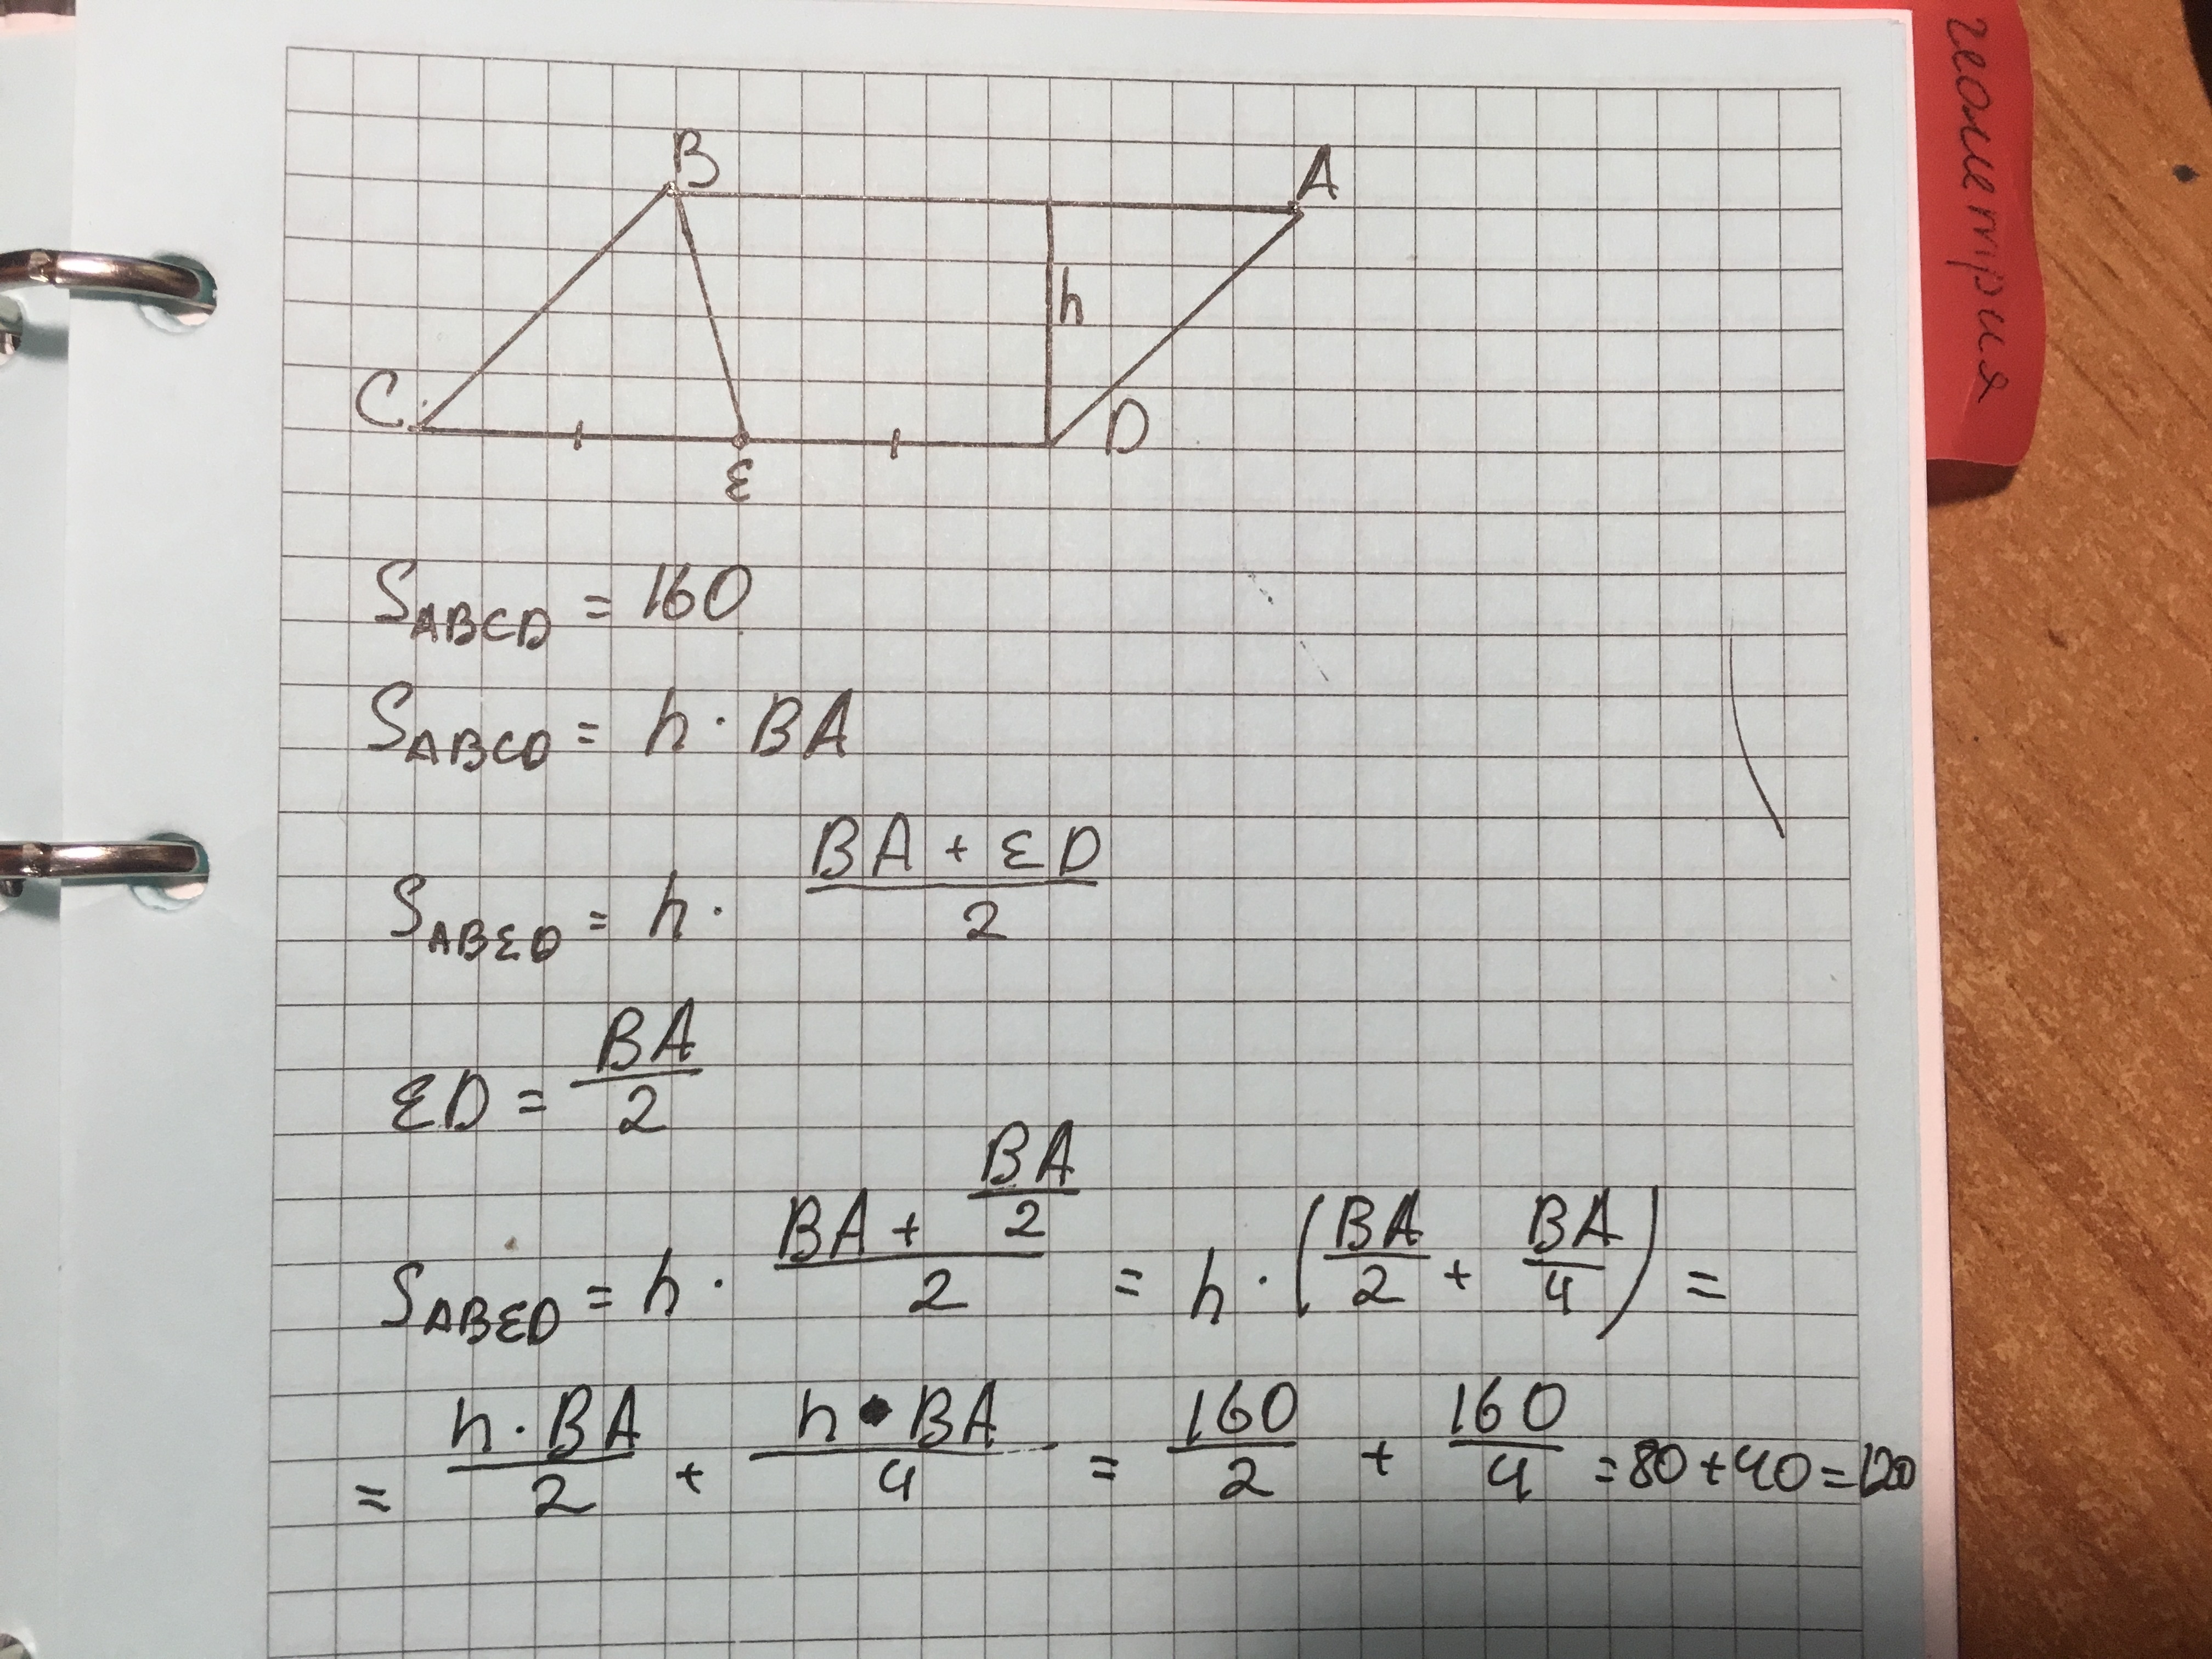 геометрия
B
A
h
C
D
E
S_ABCD = 160
S_ABCD = h · BA
S_ABED = h · (BA + ED)/2
ED = BA/2
S_ABED = h · (BA + BA/2)/2 = h · (BA/2 + BA/4) =
= h · BA/2 + h · BA/4 = 160/2 + 160/4 = 80 + 40 = 120